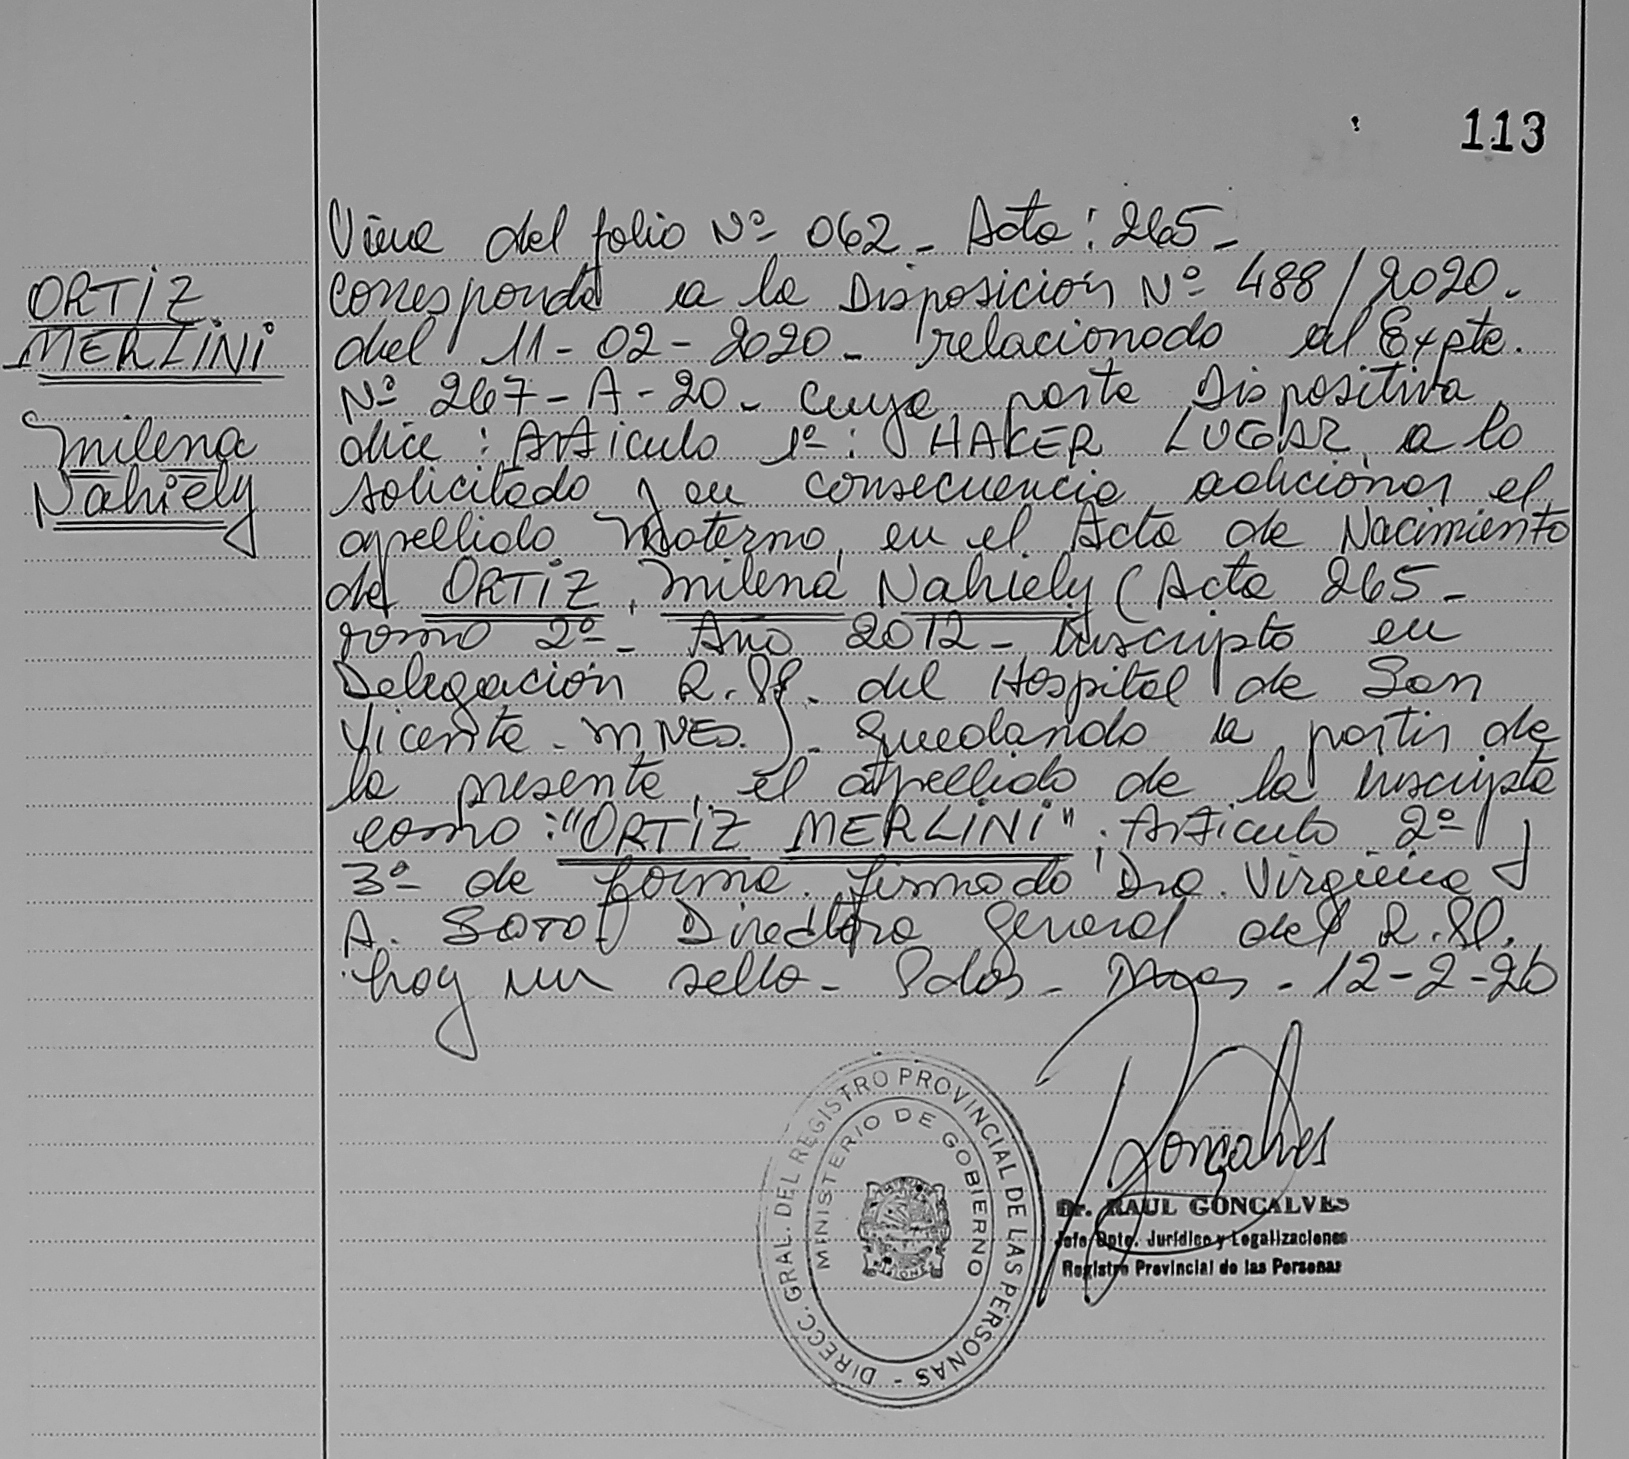 113
ORTIZ
MERLINI
Milena
Nahiely
Viene del folio Nº 062 - Acta: 265 -
Corresponde a la Disposición Nº 488/2020 -
del 11-02-2020 - relacionado al Expte.
Nº 267-A-20 - cuya parte Dispositiva
dice: Artículo 1º: HACER LUGAR a lo
solicitado y en consecuencia adicionar el
apellido Materno, en el Acta de Nacimiento
de ORTIZ, Milena Nahiely (Acta 265 -
Tomo 2º - Año 2012 - Inscripta en
Delegación R.P. del Hospital de San
Vicente - MNES.) - Quedando a partir de
la presente, el apellido de la inscripta
como: "ORTIZ MERLINI". Artículo 2º y
3º de forma. Firmado Dra. Virginia
A. Soto Directora General del R.P.
hay un sello - Pdas - Mnes - 12-2-20
DIRECC. GRAL. DEL REGISTRO PROVINCIAL DE LAS PERSONAS -
MINISTERIO DE GOBIERNO
MISIONES
Gonçalves
Dr. RAUL GONCALVES
Jefe Dpto. Jurídico y Legalizaciones
Registro Provincial de las Personas